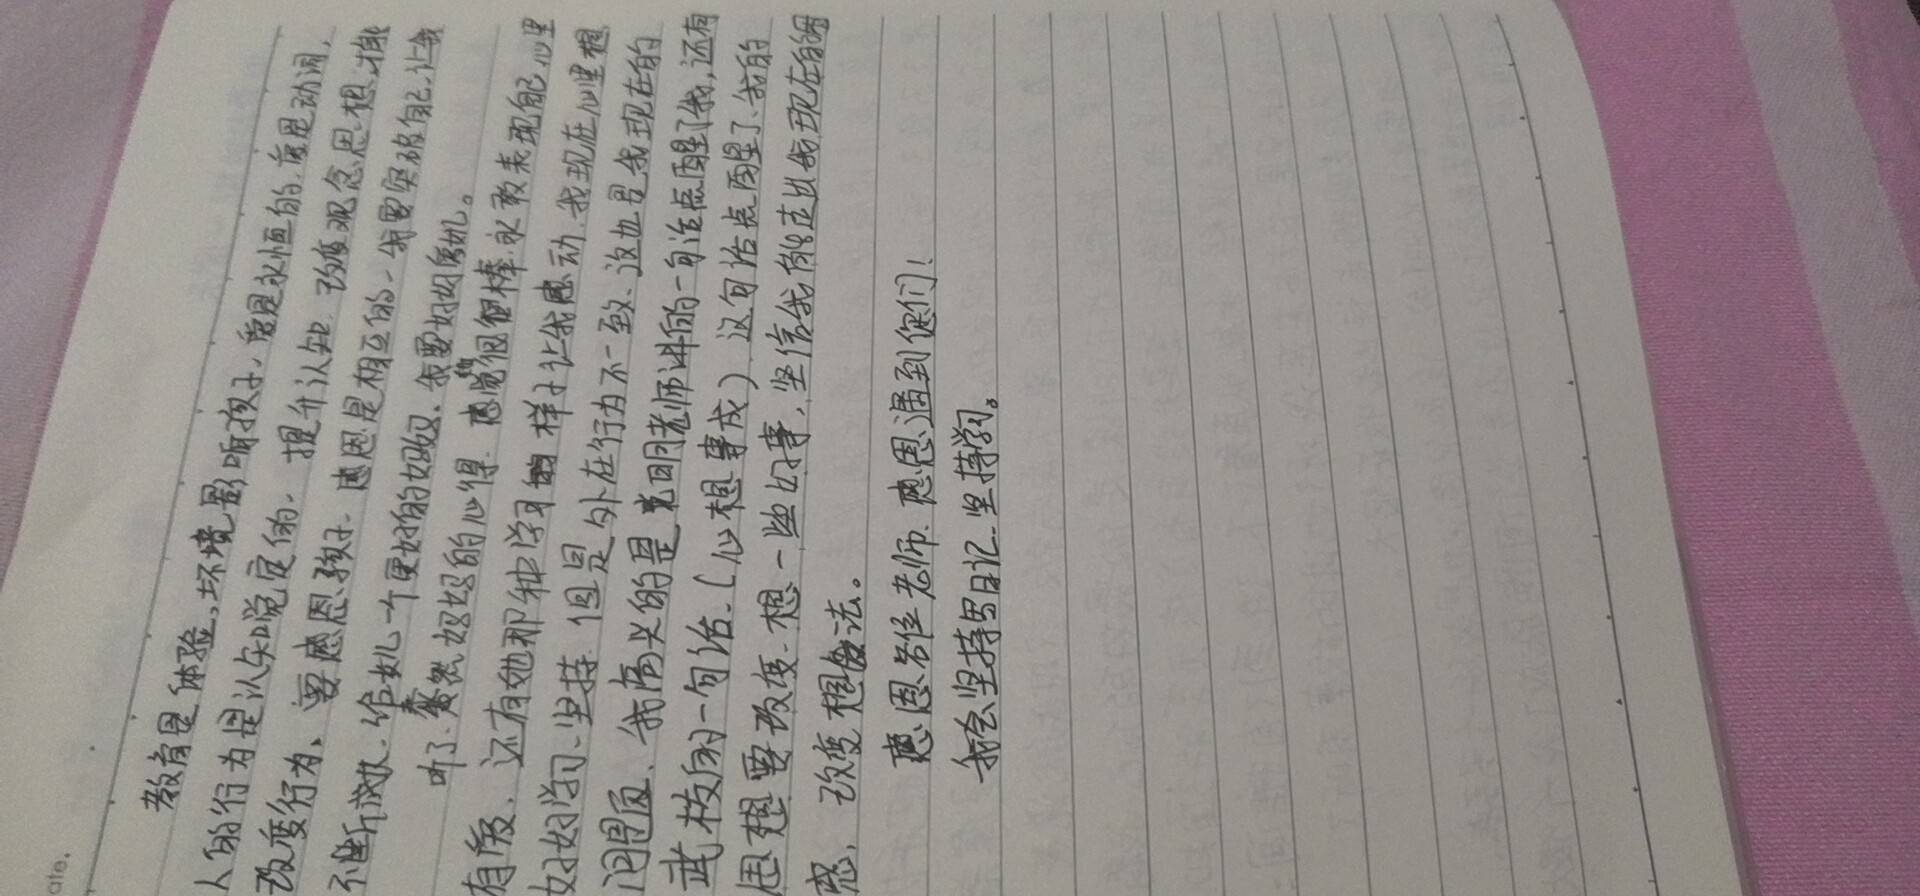 ate.
教育是体验,环境影响孩子,爱是永恒的,爱是动词,
人的行为是认知觉定的,提升认知,改变观念思想,才能
改变行为,要感恩孩子,感恩是相互的,我要突破自己,让我
不断前进,给女儿一个更好的妈妈,我要好好爱她。
听了蔡然妈妈的心得,感觉她很棒,永敢表现自己,心里
有爱,还有她那种学习的样子让我感动,我现在心里想
好好学习,坚持,但是外在行为不一致,这也是我现在的
问题,我高兴的是老师讲的一句话点醒了我,还有
武校友的一句话,(心想事成)这句话点醒了,我的
思想要改变,想一些好事,坚信我能走出我现在的困
惑,改变想法。
感恩各位老师,感恩遇到您们!
我会坚持写日记,坚持学习。